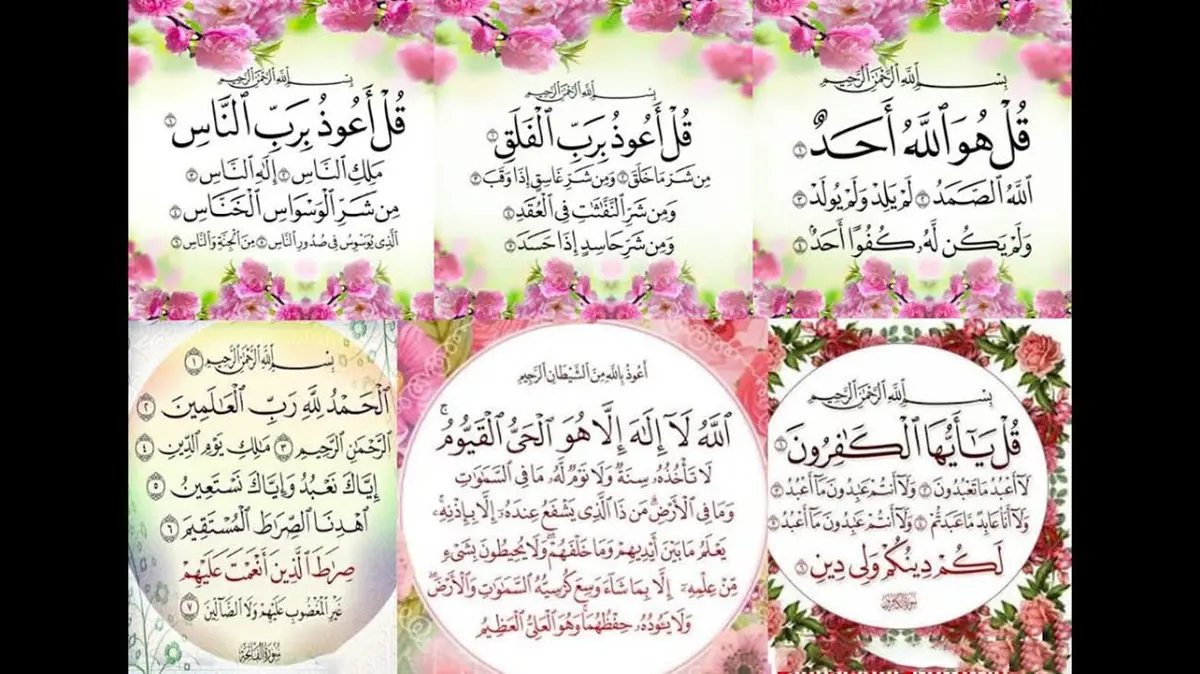 بِسْمِ ٱللَّهِ ٱلرَّحْمَٰنِ ٱلرَّحِيمِ
قُلْ هُوَ ٱللَّهُ أَحَدٌ ١
ٱللَّهُ ٱلصَّمَدُ ٢ لَمْ يَلِدْ وَلَمْ يُولَدْ ٣
وَلَمْ يَكُن لَّهُۥ كُفُوًا أَحَدٌۢ ٤
بِسْمِ ٱللَّهِ ٱلرَّحْمَٰنِ ٱلرَّحِيمِ
قُلْ أَعُوذُ بِرَبِّ ٱلْفَلَقِ ١
مِن شَرِّ مَا خَلَقَ ٢ وَمِن شَرِّ غَاسِقٍ إِذَا وَقَبَ ٣
وَمِن شَرِّ ٱلنَّفَّٰثَٰتِ فِى ٱلْعُقَدِ ٤
وَمِن شَرِّ حَاسِدٍ إِذَا حَسَدَ ٥
بِسْمِ ٱللَّهِ ٱلرَّحْمَٰنِ ٱلرَّحِيمِ
قُلْ أَعُوذُ بِرَبِّ ٱلنَّاسِ ١
مَلِكِ ٱلنَّاسِ ٢ إِلَٰهِ ٱلنَّاسِ ٣
مِن شَرِّ ٱلْوَسْوَاسِ ٱلْخَنَّاسِ ٤
ٱلَّذِى يُوَسْوِسُ فِى صُدُورِ ٱلنَّاسِ ٥ مِنَ ٱلْجِنَّةِ وَٱلنَّاسِ ٦
بِسْمِ ٱللَّهِ ٱلرَّحْمَٰنِ ٱلرَّحِيمِ
قُلْ يَٰٓأَيُّهَا ٱلْكَٰفِرُونَ ١
لَآ أَعْبُدُ مَا تَعْبُدُونَ ٢ وَلَآ أَنتُمْ عَٰبِدُونَ مَآ أَعْبُدُ ٣
وَلَآ أَنَا۠ عَابِدٌ مَّا عَبَدتُّمْ ٤ وَلَآ أَنتُمْ عَٰبِدُونَ مَآ أَعْبُدُ ٥
لَكُمْ دِينُكُمْ وَلِىَ دِينِ ٦
سُورَةُ الْكَافِرُونَ
أَعُوذُ بِاللَّهِ مِنَ ٱلشَّيْطَانِ ٱلرَّجِيمِ
ٱللَّهُ لَآ إِلَٰهَ إِلَّا هُوَ ٱلْحَىُّ ٱلْقَيُّومُ ۚ
لَا تَأْخُذُهُۥ سِنَةٌ وَلَا نَوْمٌ ۚ لَّهُۥ مَا فِى ٱلسَّمَٰوَٰتِ
وَمَا فِى ٱلْأَرْضِ ۗ مَن ذَا ٱلَّذِى يَشْفَعُ عِندَهُۥٓ إِلَّا بِإِذْنِهِۦ ۚ
يَعْلَمُ مَا بَيْنَ أَيْدِيهِمْ وَمَا خَلْفَهُمْ ۖ وَلَا يُحِيطُونَ بِشَىْءٍ
مِّنْ عِلْمِهِۦٓ إِلَّا بِمَا شَآءَ ۚ وَسِعَ كُرْسِيُّهُ ٱلسَّمَٰوَٰتِ وَٱلْأَرْضَ ۖ
وَلَا يَـُٔودُهُۥ حِفْظُهُمَا ۚ وَهُوَ ٱلْعَلِىُّ ٱلْعَظِيمُ
بِسْمِ ٱللَّهِ ٱلرَّحْمَٰنِ ٱلرَّحِيمِ ١
ٱلْحَمْدُ لِلَّهِ رَبِّ ٱلْعَٰلَمِينَ ٢
ٱلرَّحْمَٰنِ ٱلرَّحِيمِ ٣ مَٰلِكِ يَوْمِ ٱلدِّينِ ٤
إِيَّاكَ نَعْبُدُ وَإِيَّاكَ نَسْتَعِينُ ٥
ٱهْدِنَا ٱلصِّرَٰطَ ٱلْمُسْتَقِيمَ ٦
صِرَٰطَ ٱلَّذِينَ أَنْعَمْتَ عَلَيْهِمْ
غَيْرِ ٱلْمَغْضُوبِ عَلَيْهِمْ وَلَا ٱلضَّآلِّينَ ٧
سُورَةُ الْفَاتِحَةِ